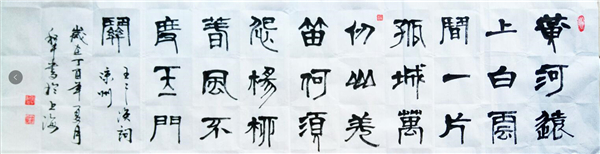 黃河遠
上白雲
間一片
孤城萬
仞山羌
笛何須
怨楊柳
春風不
度玉門
關
王之渙詞
涼州
歲在丁酉年夏月
書於上海